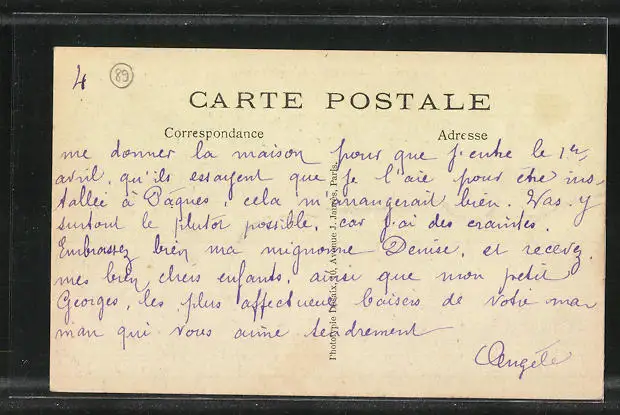 4
89
CARTE POSTALE
Correspondance
Adresse
me donner la maison pour que j'entre le 1er
avril, qu'ils essayent que je l'aie pour être ins-
tallée à Pâques, cela m'arrangerait bien. Vas-y
surtout le plutot possible, car j'ai des craintes.
Embrassez bien ma mignonne Denise, et recevez,
mes bien chers enfants, ainsi que mon petit
Georges, les plus affectueux baisers de votre ma-
man qui vous aime tendrement
Angèle
Phototypie Avenue J. Jaurès, Paris